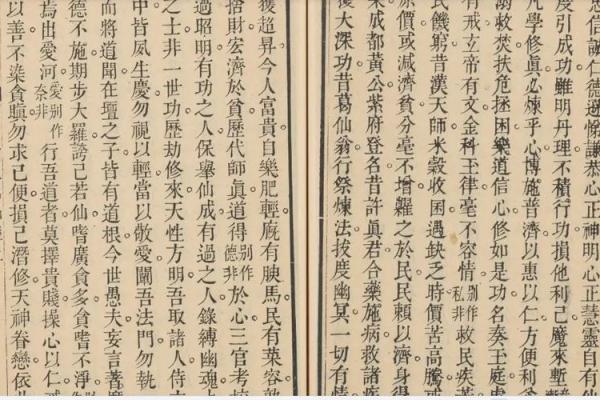 忠信誠仁德遜悌謙恭心正神明心正慧靈自有仙
度引成功雖明丹理不積行功損他利己魔來塹
凡學修眞必煉乎心博施普濟以惠以仁方便利
溺救焚扶危拯困樂道信心修如是功名奏王庭處
有戒立帝有文金科玉律毫不容情別作私非救民疾苦
民饑窮昔漢天師米穀收囤遇缺乏時價苦高騰或
原價或減濟貧分毫不增糴之於民民賴以濟身得
果成都黃公紫府登名昔許眞君合藥施病救諸疾
後大深功昔葛仙翁行祭煉法拔度幽冥一切有情
獲超昇今人富貴自樂肥輕廐有腴馬民有菜容
捨財宏濟於貧歷代師眞道得別作德非於心三官考校
過昭明有功之人保舉仙成有過之人錄縛幽魂
之士非一世功歷劫修來天性方明吾取諸人侍
中皆夙生慶勿視以輕當以敬愛闡吾法門勿執
而將道聞在壇之子皆有道根今世愚夫妄言著
德不施期步大羅謗己若仙呰廣貪多貪嗜不淨
焉出愛河愛別作奈非行吾道者莫擇貴賤操心以仁
以善不染貪瞋勿求己便損己潛修天神眷戀依